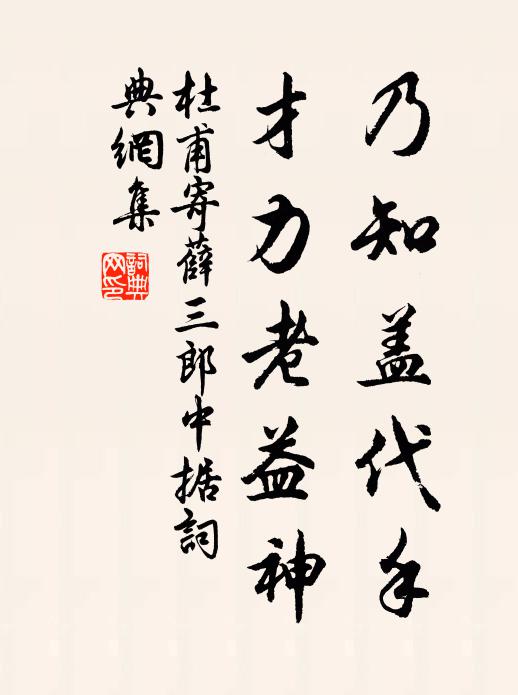 乃知盖代手
才力老益神
杜甫寄薛三郎中据詞
典網集
詞典
网印